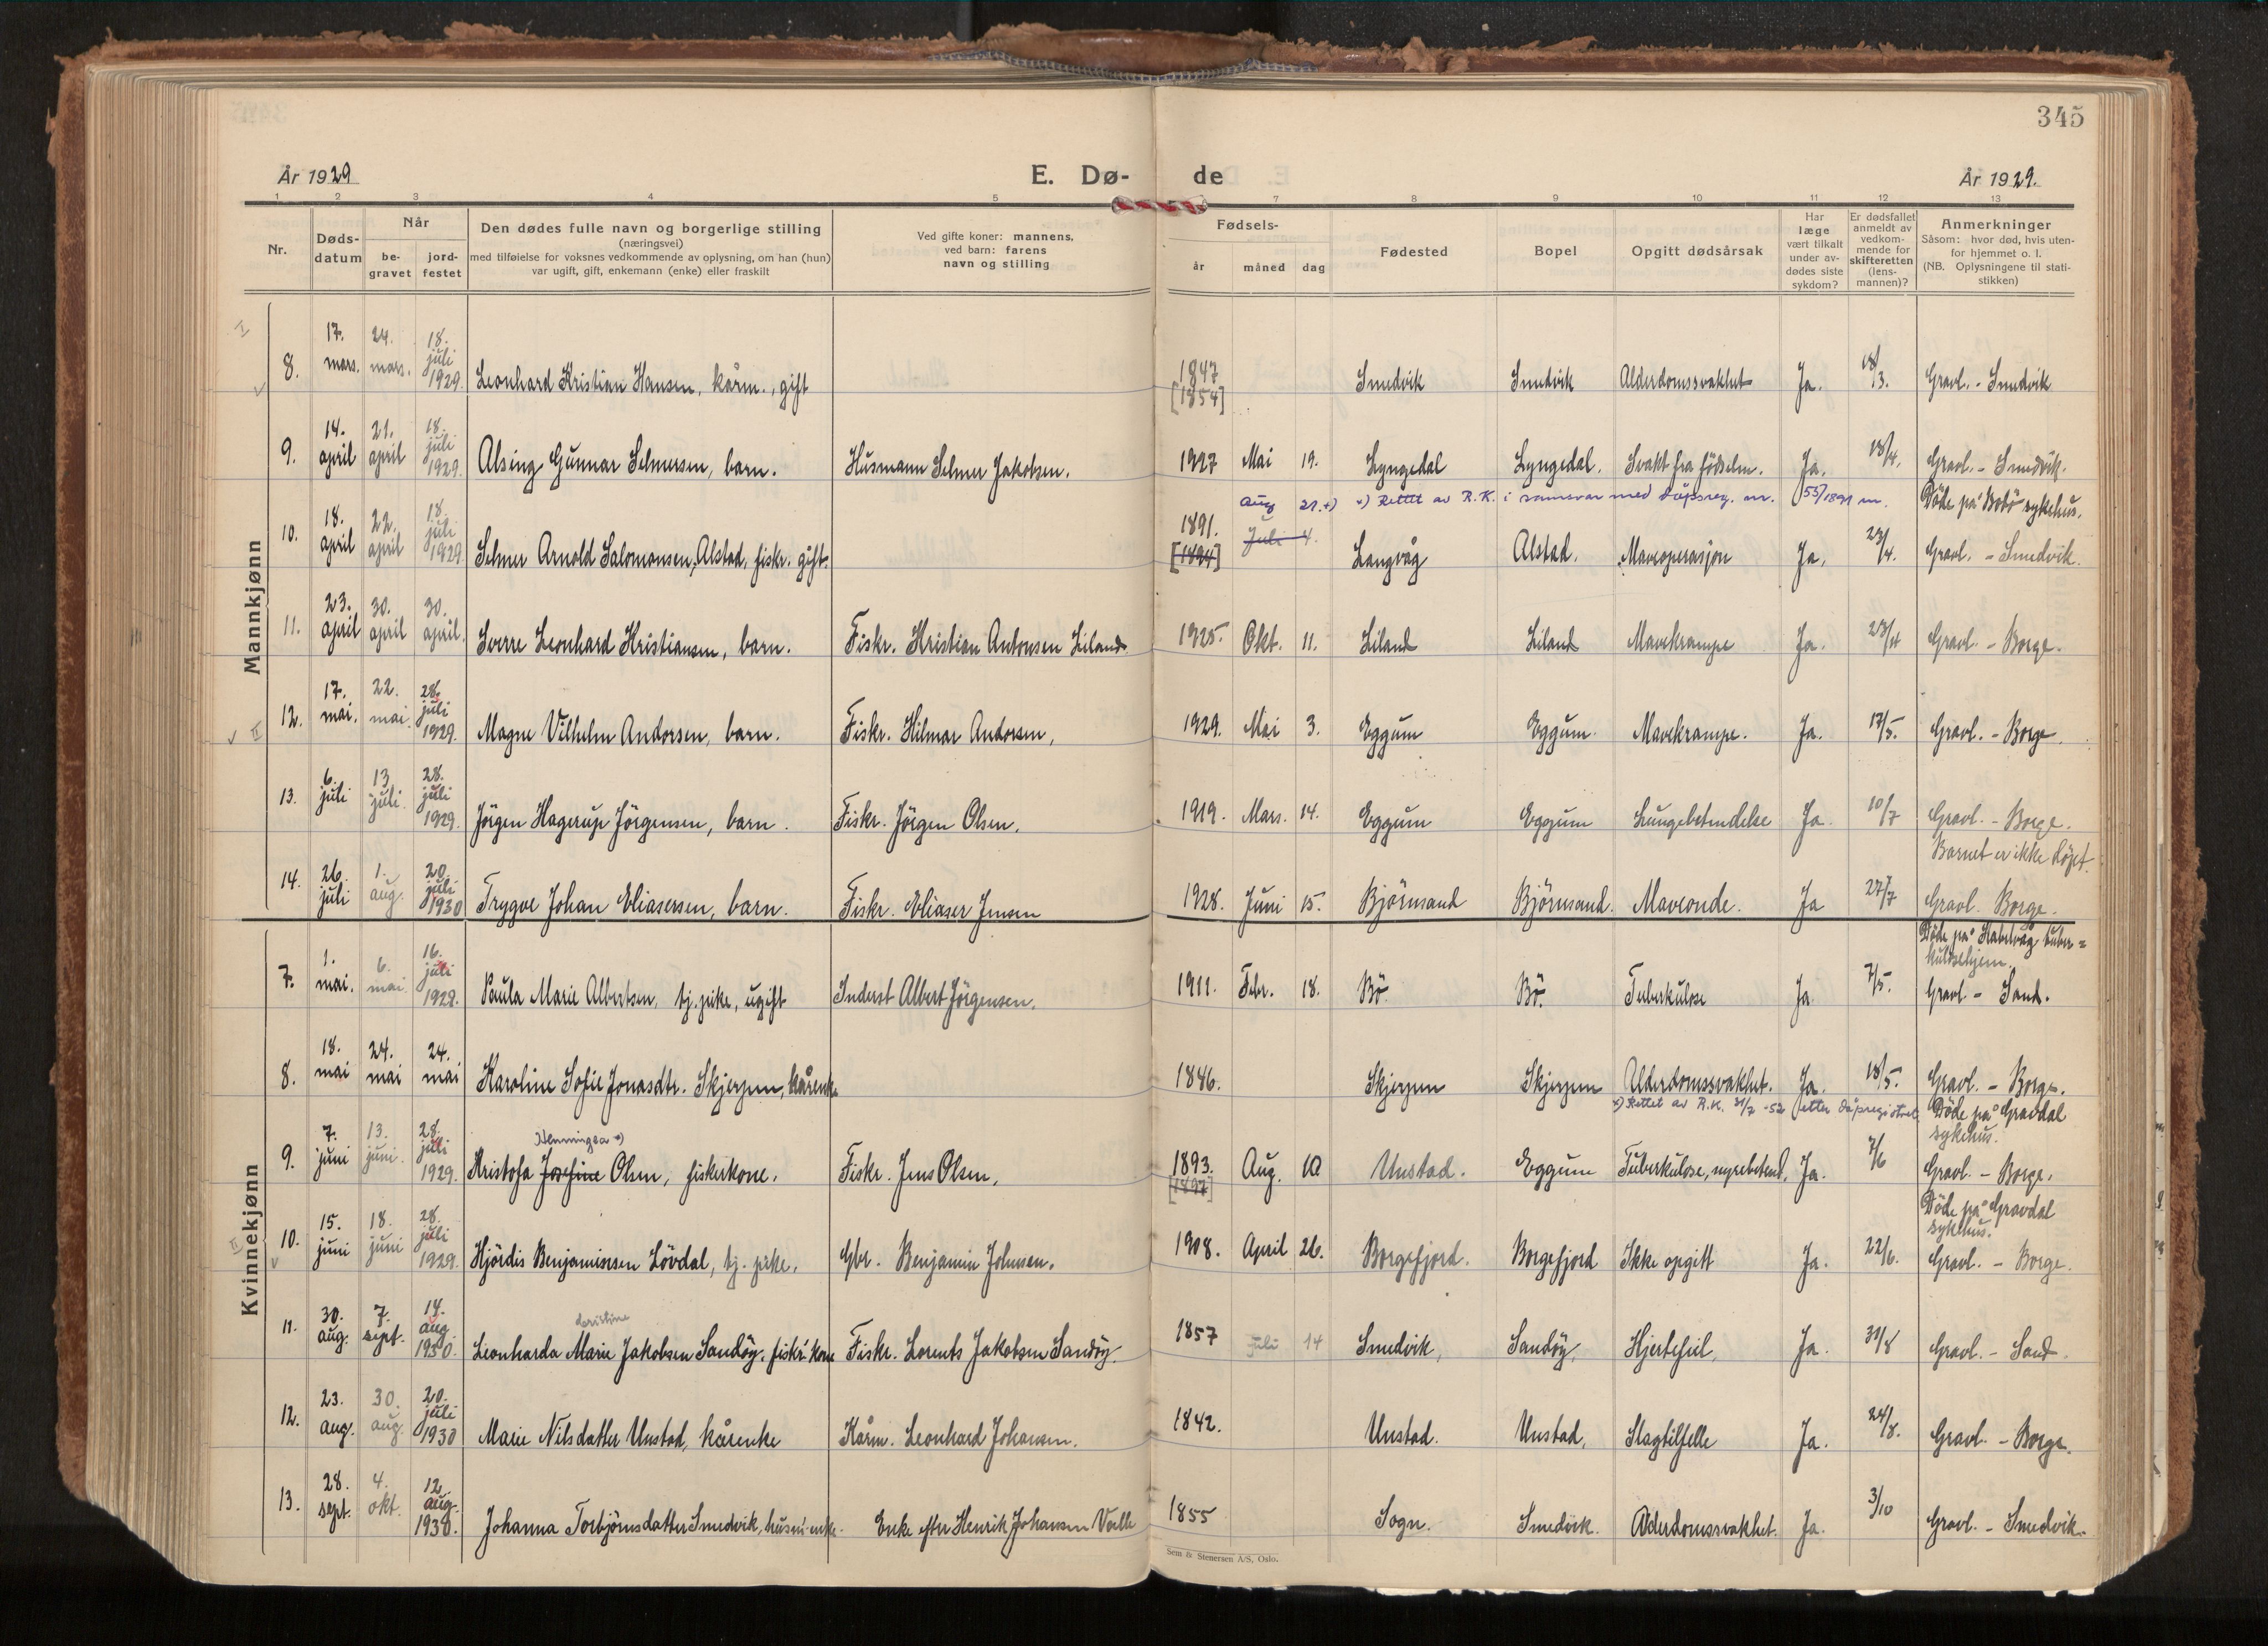 345
År 1929
E. Dø-
de
År 1929.
1 2 3 4 5 7 8 9 10 11 12 13
Nr.
Døds-
datum
Når
be-
gravet
jord-
festet
Den dødes fulle navn og borgerlige stilling
(næringsvei)
med tilføielse for voksnes vedkommende av oplysning, om han (hun)
var ugift, gift, enkemann (enke) eller fraskilt
Ved gifte koner: mannens,
ved barn: farens
navn og stilling
Fødsels-
år måned dag
Fødested
Bopel
Opgitt dødsårsak
Har
læge
vært tilkalt
under av-
dødes siste
sykdom?
Er dødsfallet
anmeldt av
vedkom-
mende for
skifteretten
(lens-
mannen)?
Anmerkninger
Såsom: hvor død, hvis uten-
for hjemmet o. l.
(NB. Oplysningene til stati-
stikken)
Mannkjønn
8. 17. mars. 24. mars. 18. juli 1929. Leonhard Kristian Hansen, kårm., gift 1847 [1854] Smedvik Smedvik Alderdomssvakhet Ja. 18/3. Gravl. - Smedvik
9. 14. april 21. april 18. juli 1929. Alsing Gunnar Selmersen, barn. Husmann Selmer Jakobsen. 1927 Mai 19. Lyngedal Lyngedal. Svakt fra fødselen. Ja. 18/4. Gravl. - Smedvik.
Aug 21.+) +) Rettet av R.K. i samsvar med dåpsreg. nr. 55/1891 m. Døde på Bodø sykehus.
10. 18. april 22. april 18. juli 1929. Selmer Arnold Salomonsen, Alstad, fiskr. gift. 1891. [1894] Juli 4. Langvåg Alstad. Maveoperasjon Ja. 23/4. Gravl. - Smedvik.
11. 23. april 30. april 30. april. Sverre Leonhard Kristiansen, barn. Fiskr. Kristian Antonsen Liland 1925. Okt. 11. Liland Liland Mavekrampe Ja. 23/4 Gravl. - Borge.
12. 17. mai. 22. mai. 28. juli 1929. Magne Vilhelm Andorsen, barn. Fiskr. Hilmar Andorsen, 1929. Mai 3. Eggum Eggum Mavekrampe. Ja. 17/5. Gravl. - Borge.
13. 6. juli 13. juli. 28. juli 1929. Jörgen Hagerup Jörgensen, barn. Fiskr. Jörgen Olsen. 1919. Mars. 14. Eggum Eggum Lungebetendelse Ja. 10/7 Gravl. - Borge.
Barnet er ikke døpt.
14. 26. juli 1. aug. 20. juli 1930 Trygve Johan Eliasersen, barn. Fiskr. Eliaser Jensen 1928. Juni 15. Björnsand Björnsand. Maveonde. Ja 27/7 Gravl. Borge.
Kvinnekjønn
Døde på Kabelvåg tuber=
kulosehjem.
7. 1. mai. 6. mai 16. juli 1929. Paula Marie Albertsen, tj. pike, ugift Inderst Albert Jörgensen. 1911. Febr. 18. Bö. Bö. Tuberkulose Ja 7/5. Gravl. - Sand.
8. 18. mai 24. mai 24. mai Karoline Sofie Jonasdtr. Skjerpen, kårenke 1846. Skjerpen Skjerpen Alderdomssvakhet. Ja. 18/5. Gravl. - Borge.
x) Rettet av R.K. 31/7 -52 etter dåpregistret Døde på Gravdal
sykehus.
Henningsa x)
9. 7. juni 13. juni. 28. juli 1929. Kristofa Josefine Olsen, fiskerkone. Fiskr. Jens Olsen. 1893. [1897] Aug. 10 Unstad. Eggum Tuberkulose, nyrebetend. Ja. 7/6 Gravl. - Borge.
Døde på Gravdal
sykehus.
10. 15. juni 18. juni 28. juli 1929. Hjördis Benjaminsen Lövdal, tj. pike. Gbr. Benjamin Johnsen. 1908. April 26. Borgefjord. Borgefjord Ikke opgitt Ja. 22/6. Gravl. - Borge.
11. 30. aug. 7. sept. 14. aug 1930. Leonharda Marie Jakobsen Sandöy, fiskr. kone Fiskr. Lorents Jakobsen Sandöy. 1857 juli 14 Smedvik, Sandöy, Hjertefeil, Ja. 31/8 Gravl. - Sand.
12. 23. aug. 30. aug. 20. juli 1930 Marie Nilsdatter Unstad, kårenke Kårm. Leonhard Johansen. 1842. Unstad. Unstad, Slagtilfelle Ja. 24/8. Gravl. - Borge.
13. 28. sept. 4. okt. 12. aug. 1930. Johanna Torbjörnsdatter Smedvik, husm. enke. Enke efter Henrik Johansen Valle 1855 Sogn. Smedvik. Alderdomssvakhet. Ja. 3/10 Gravl. - Smedvik.
Sem & Stenersen A/S, Oslo.